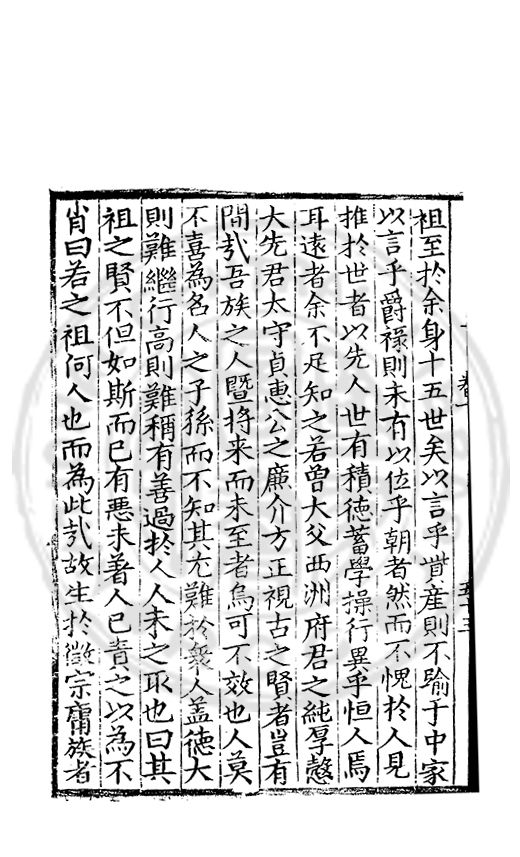 祖至於余身十五世矣以言乎貲產則不踰于中家
以言乎爵祿則未有以位乎朝者然而不愧於人見
推於世者以先人世有積德蓄學操行異乎恒人焉
耳遠者余不足知之若曾大父西洲府君之純厚慤
大先君太守貞惠公之廉介方正視古之賢者豈有
間㢤吾族之人暨将来而未至者烏可不效也人莫
不喜為名人之子孫而不知其尤難於衆人盖德大
則難繼行高則難稱有善過於人人未之取也曰其
祖之賢不但如斯而已有惡未著人已責之以為不
肖曰若之祖何人也而為此㢤故生於微宗庸族者
卷一
五十三